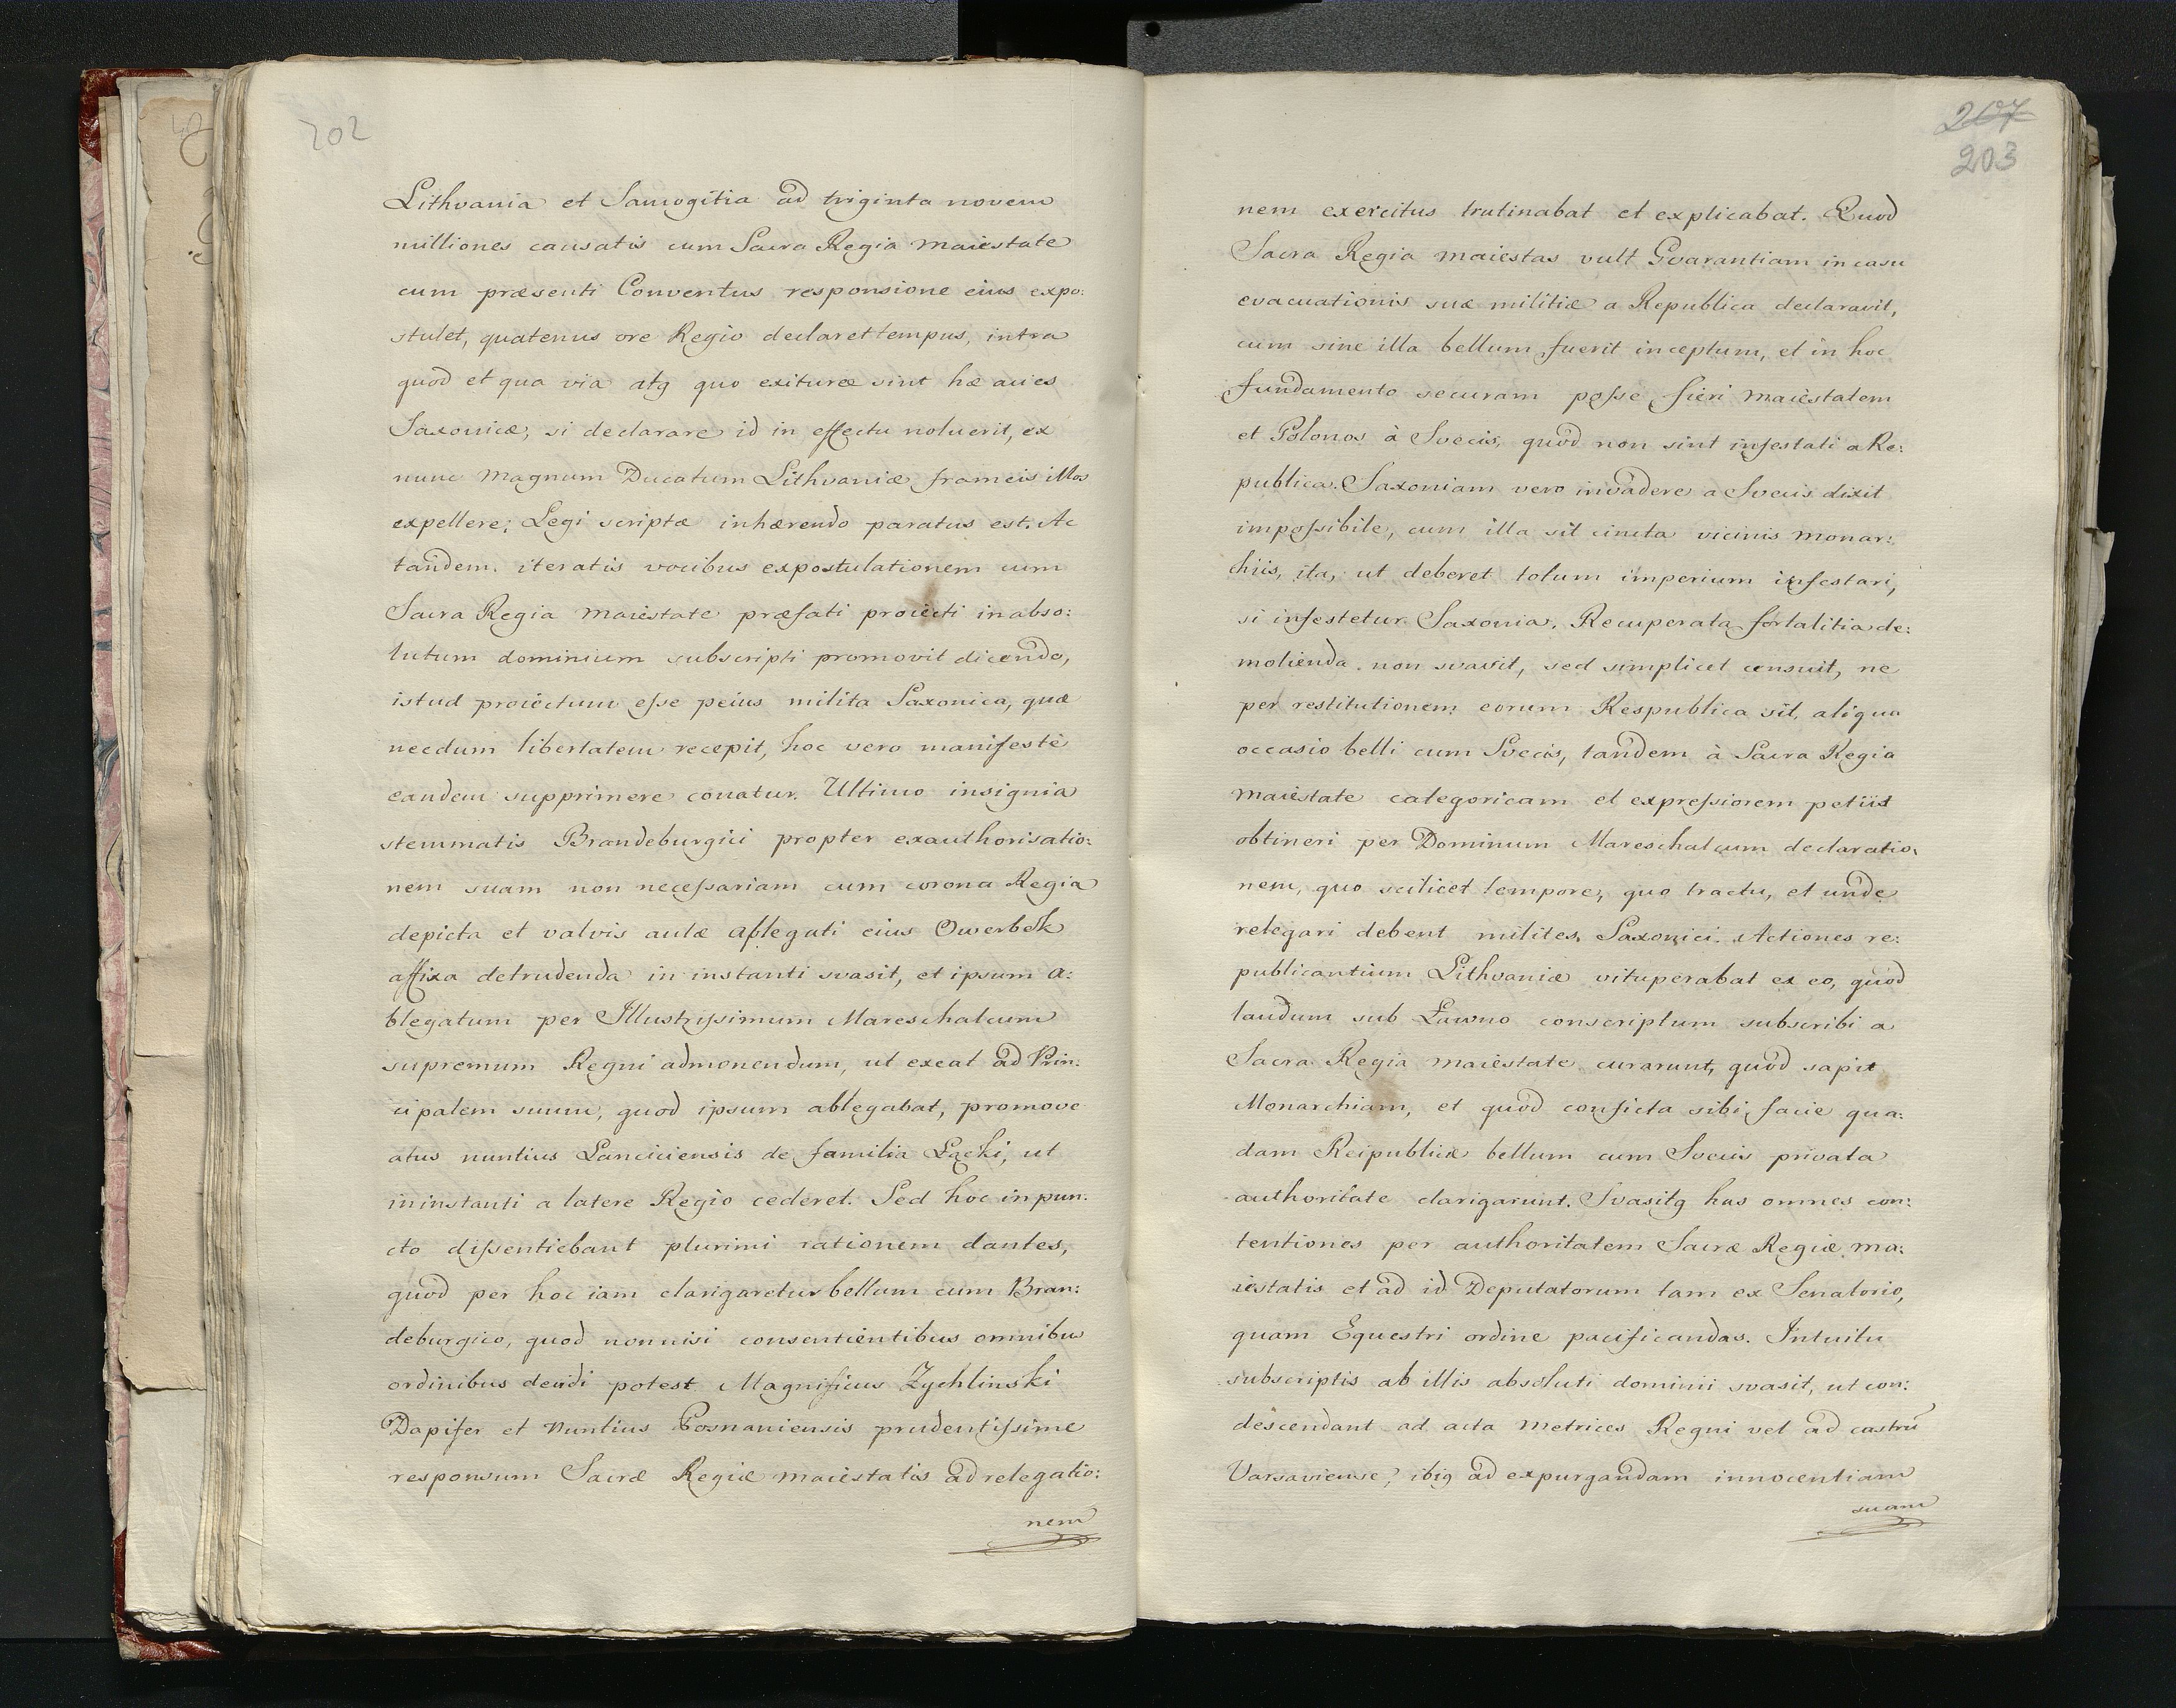 202
Lithvania et Samogitia ad triginta novem
milliones causatis cum Sacra Regia maiestate
cum præsenti Conventus responsione eius expo:
stulet, quatenus ore Regio declaret tempus, intra
quod et qua via atq quo exituræ sint hæ acies
Saxonicæ, si declarare id in effectu noluerit, ex
nunc Magnum Ducatum Lithvaniæ frameis illos
expellere; Legi scriptæ inhærendo paratus est. Ac
tandem iteratis vocibus expostulationem cum
Sacra Regia maiestate præfati proiecti in abso:
lutum dominium subscripti promovit dicendo,
istud proiectum esse peius milita Saxonica, quæ
necdum libertatem recepit, hoc vero manifestè
eandem supprimere conatur. Ultimo insignia
stemmatis Brandeburgici propter exauthorisatio:
nem suam non necessariam cum corona Regia
depicta et valvis aulæ ablegati eius Owerbek
affixa detrudenda in instanti svasit, et ipsum a:
blegatum per Illustrissimum Mareschalcum
supremum Regni admonendum, ut exeat ad Prin:
cipalem suum, quod ipsum ablegabat, promove
atus nuntius Lanciciensis de familia Łącki, ut
in instanti a latere Regio cederet. Sed hoc in pun:
cto dissentiebant plurimi rationem dantes,
quod per hoc iam clarigaretur bellum cum Bran:
deburgico, quod nonnisi consentientibus omnibus
ordinibus decidi potest Magnificus Zychlinski
Dapifer et Nuntius Posnaniensis prudentissime
responsum Sacræ Regiæ maiestatis ad relegatio:
nem
207
203
nem exercitus trutinabat et explicabat. Quod
Sacra Regia maiestas vult Gvarantiam in casu
evacuationis suæ militiæ a Republica declaravit,
cum sine illa bellum fuerit inceptum, et in hoc
fundamento securam posse fieri maiestatem
et Polonos à Svecis, quod non sint infestati a Re:
publica. Saxoniam vero invadere a Svecis dixit
impossibile, cum illa sit cincta vicinis monar:
chiis, ita, ut deberet totum imperium infestari,
si infestetur Saxonia. Recuperata fortalitia de:
molienda non svasit, sed simplicet censuit, ne
per restitutionem eorum Respublica sit, aliqua
occasio belli cum Svecis, tandem à Sacra Regia
maiestate categoricam et expressiorem petiit
obtineri per Dominum Mareschalcum declaratio:
nem, quo scilicet tempore, quo tractu, et unde
relegari debent milites Saxonici. Actiones re:
publicantium Lithvaniæ vituperabat ex eo, quod
laudum sub Ławno conscriptum subscribi a
Sacra Regia maiestate curarunt, quod sapit
Monarchiam, et quod conficta sibi facie qua:
dam Reipublicæ bellum cum Svecis privata
authoritate clarigarunt. Svasitq has omnes con:
tentiones per authoritatem Sacræ Regiæ ma:
iestatis et ad id Deputatorum tam ex Senatorio,
quam Equestri ordine pacificandas. Intuitu
subscriptis ab illis absoluti dominii svasit, ut con:
descendant ad acta Metrices Regni vel ad castrū
Varsaviense, ibiq ad expurgandam innocentiam
suam